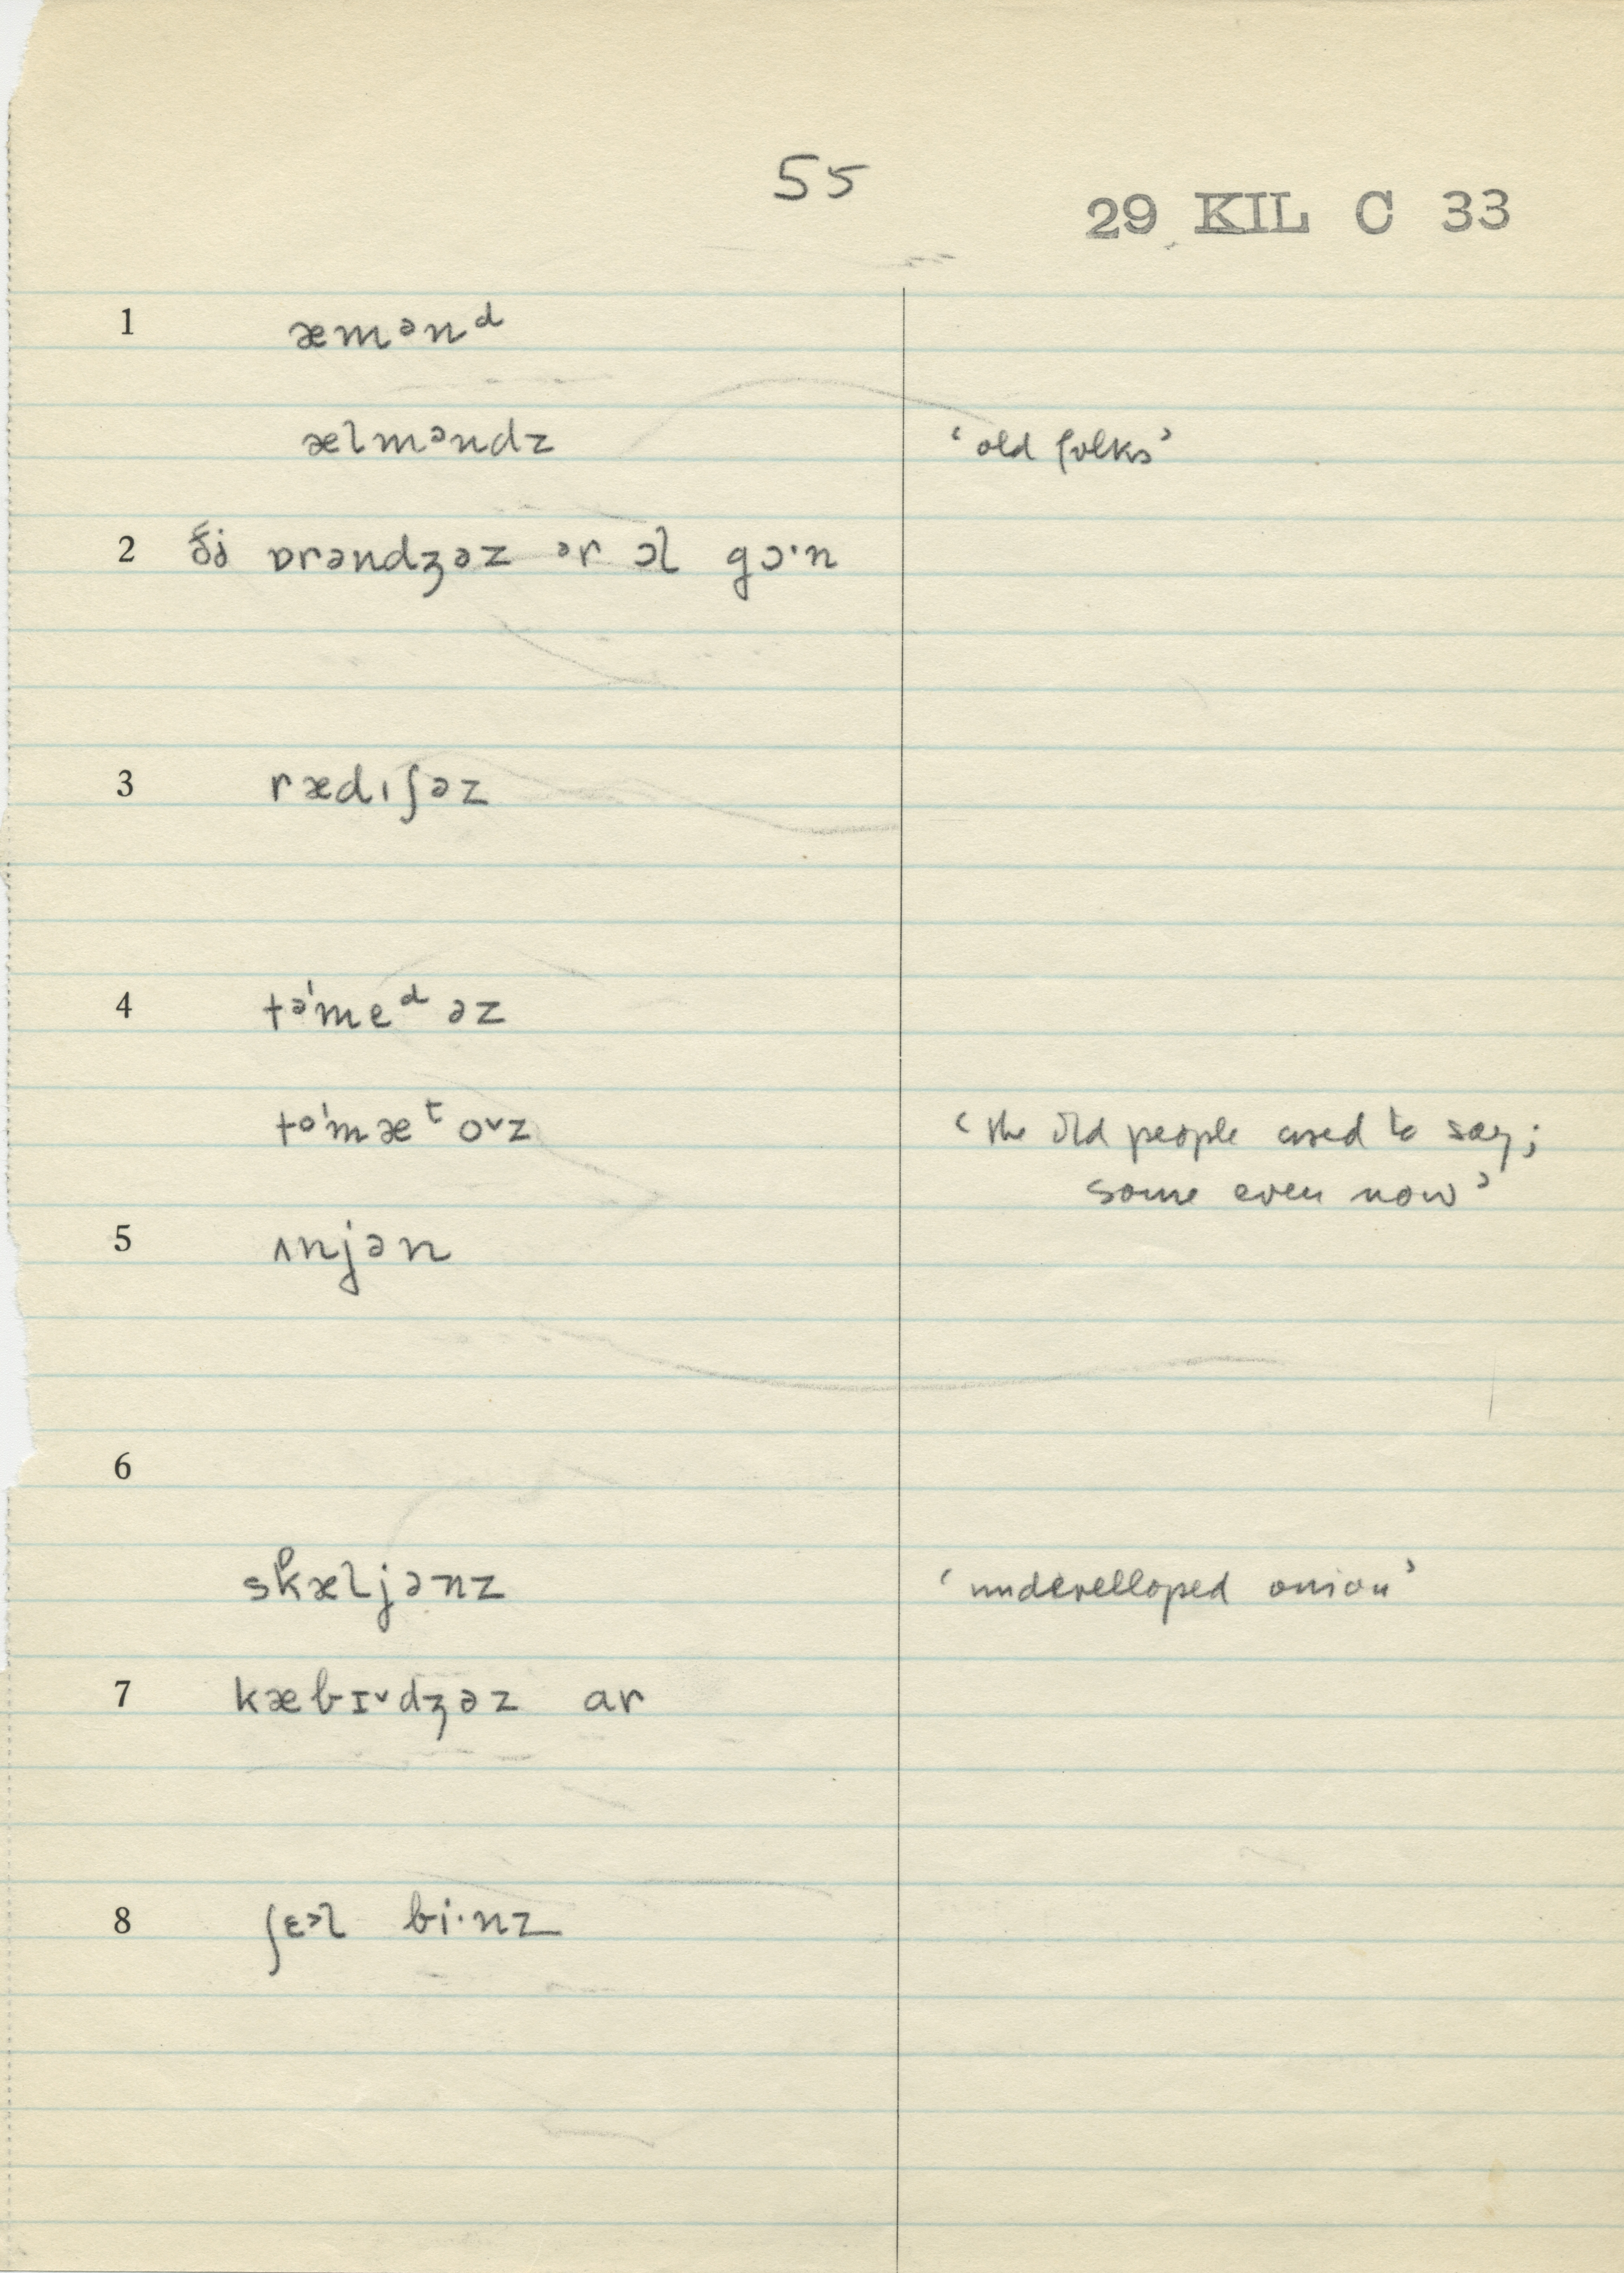 55
29 KIL C 33
1 æmənᵈ
ælməndz ‘old folks’
2 ði ɒrəndʒəz ər ɔl gɔ·n
3 rædɪʃəz
4 tə'meᵈəz
to'mæᵗoᵛz ‘the old people used to say;
some even now’
5 ʌnjən
6
skæljənz ‘undevelloped onion’
7 kæbɪᵛdʒəz ar
8 ʃɛ˃l bi·nz